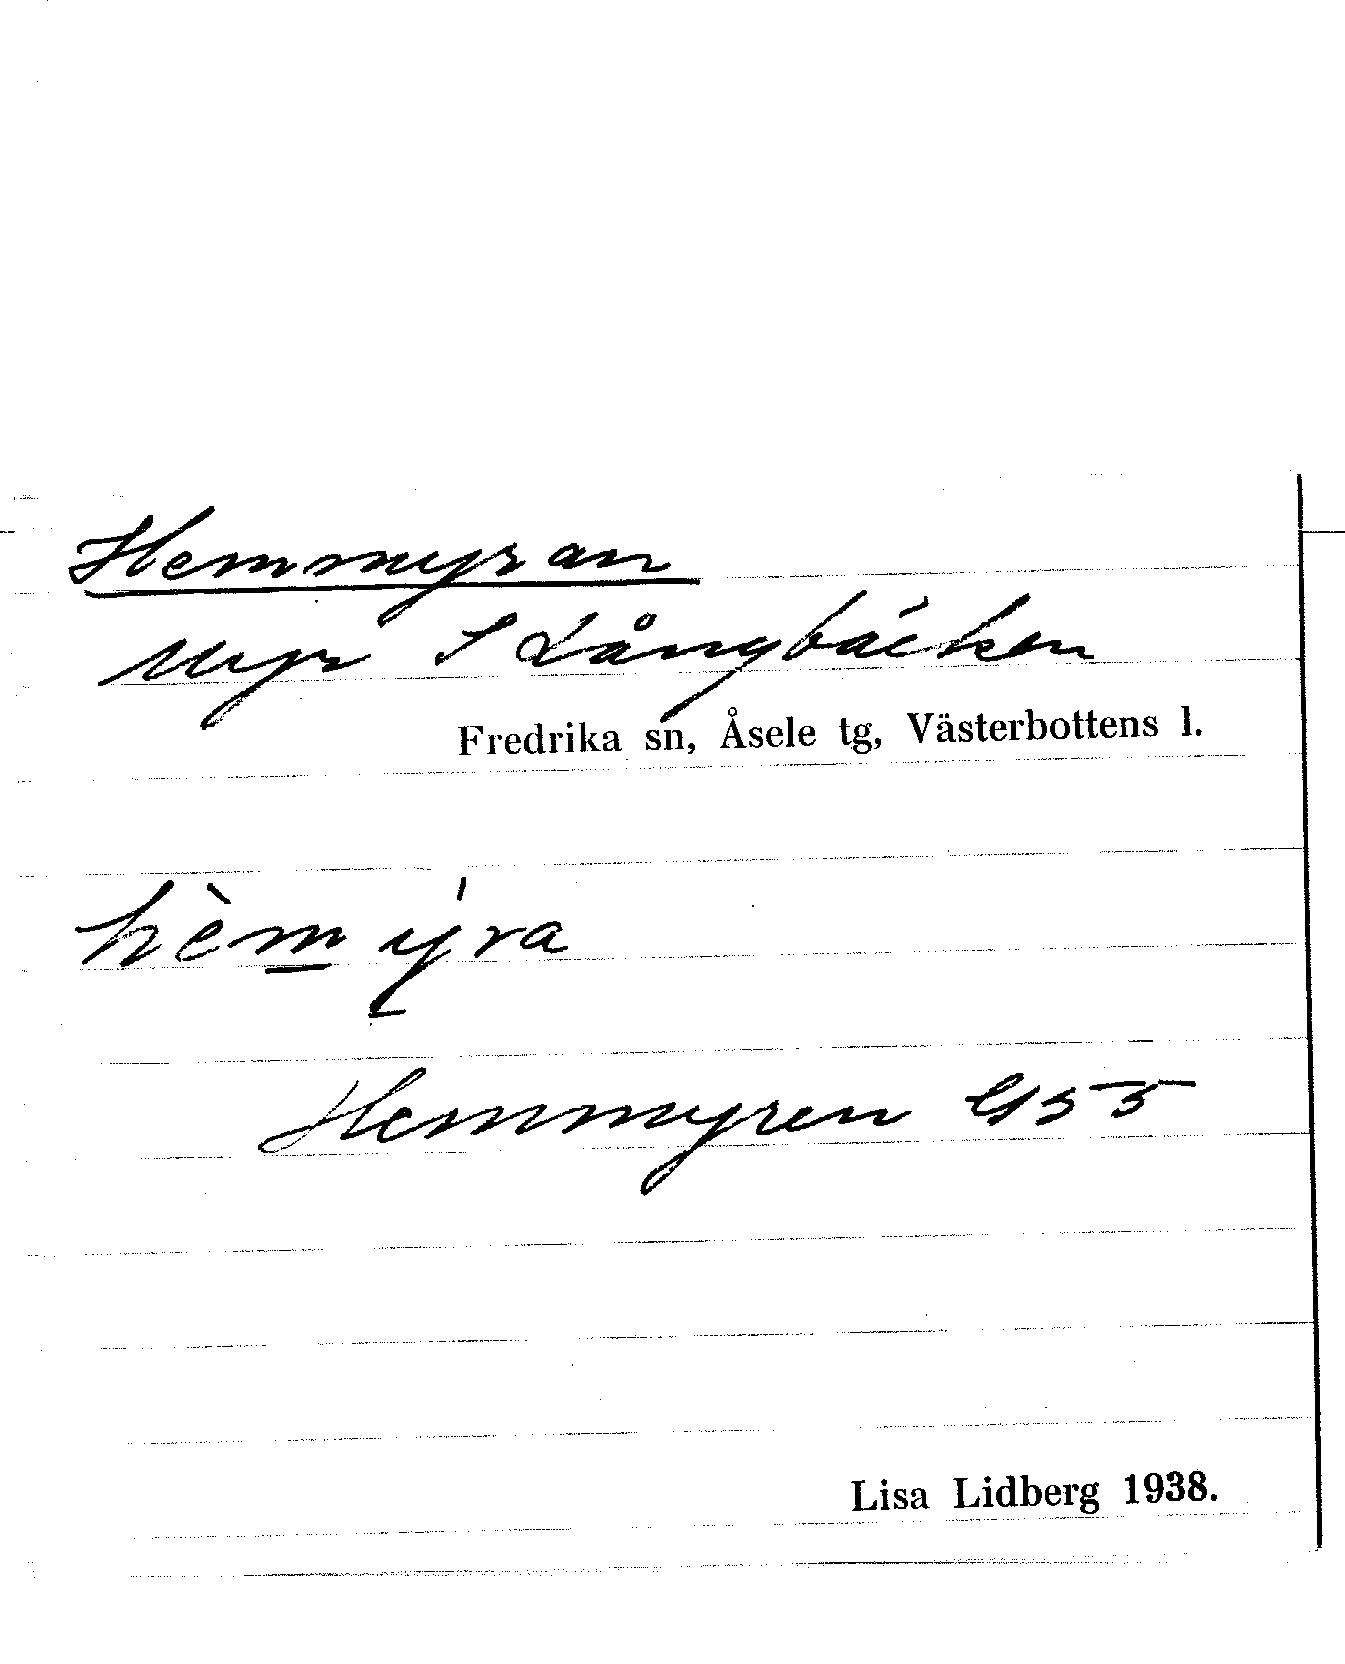 Hemmyran
Myr S Långbäcken
Fredrika sn, Åsele tg, Västerbottens l.
hèmýra
Hemmyren G 55
Lisa Lidberg 1938.